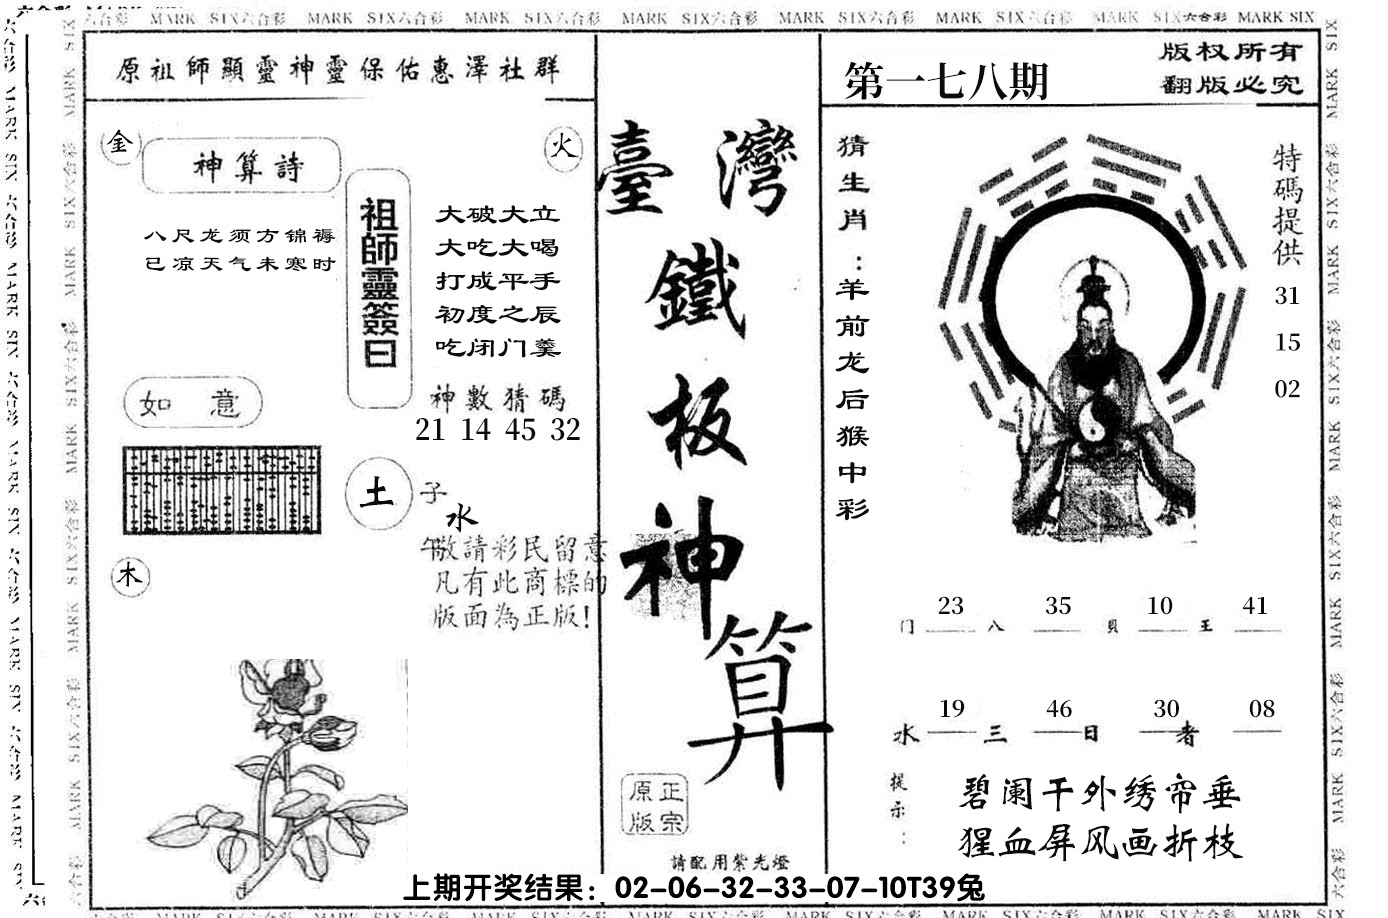 MARK SIX六合彩 MARK SIX六合彩 MARK SIX六合彩 MARK SIX六合彩 MARK SIX六合彩 MARK SIX六合彩 MARK SIX六合彩 MARK SIX
原祖師顯靈神靈保佑惠澤社群
金
神算詩
八尺龙须方锦褥
已凉天气未寒时
如 意
木
火
祖師靈簽曰
大破大立
大吃大喝
打成平手
初度之辰
吃闭门羹
神數猜碼
21 14 45 32
土
子
水
午
敬請彩民留意
凡有此商標的
版面為正版!
臺灣
鐵
板
神
算
正宗
原版
請配用紫光燈
第一七八期
版权所有
翻版必究
猜生肖：羊前龙后猴中彩
特碼提供
31
15
02
23 35 10 41
门 八 貝 王
19 46 30 08
水 三 日 者
提示：
碧阑干外绣帘垂
猩血屏风画折枝
上期开奖结果：02-06-32-33-07-10T39兔